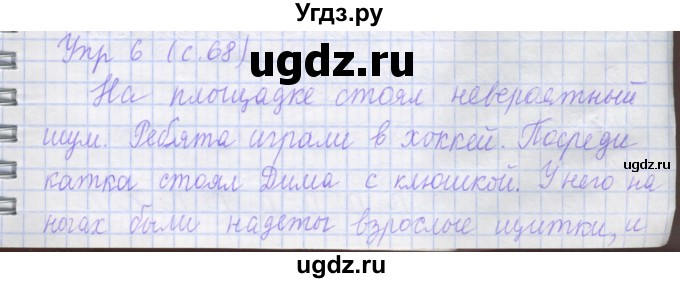 Угдз.ру
Упр 6 (с.68)
ugdz.ru
На площадке стоял невероятный
шум. Ребята играли в хоккей. Посреди
катка стоял Дима с клюшкой. У него на
ногах были надеты взрослые щитки, и
ugdz.ru
ugdz.ru
ugdz.ru
ugdz.ru
ugdz.ru